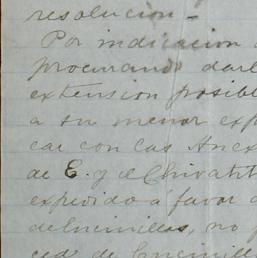 resolución -
Por indicacion
procurando dar
extension posibl
a su menor exp
car con las Anex
de E. y el Chivatit
expedido á favor
de Encinillas, no p
ced de Encinill